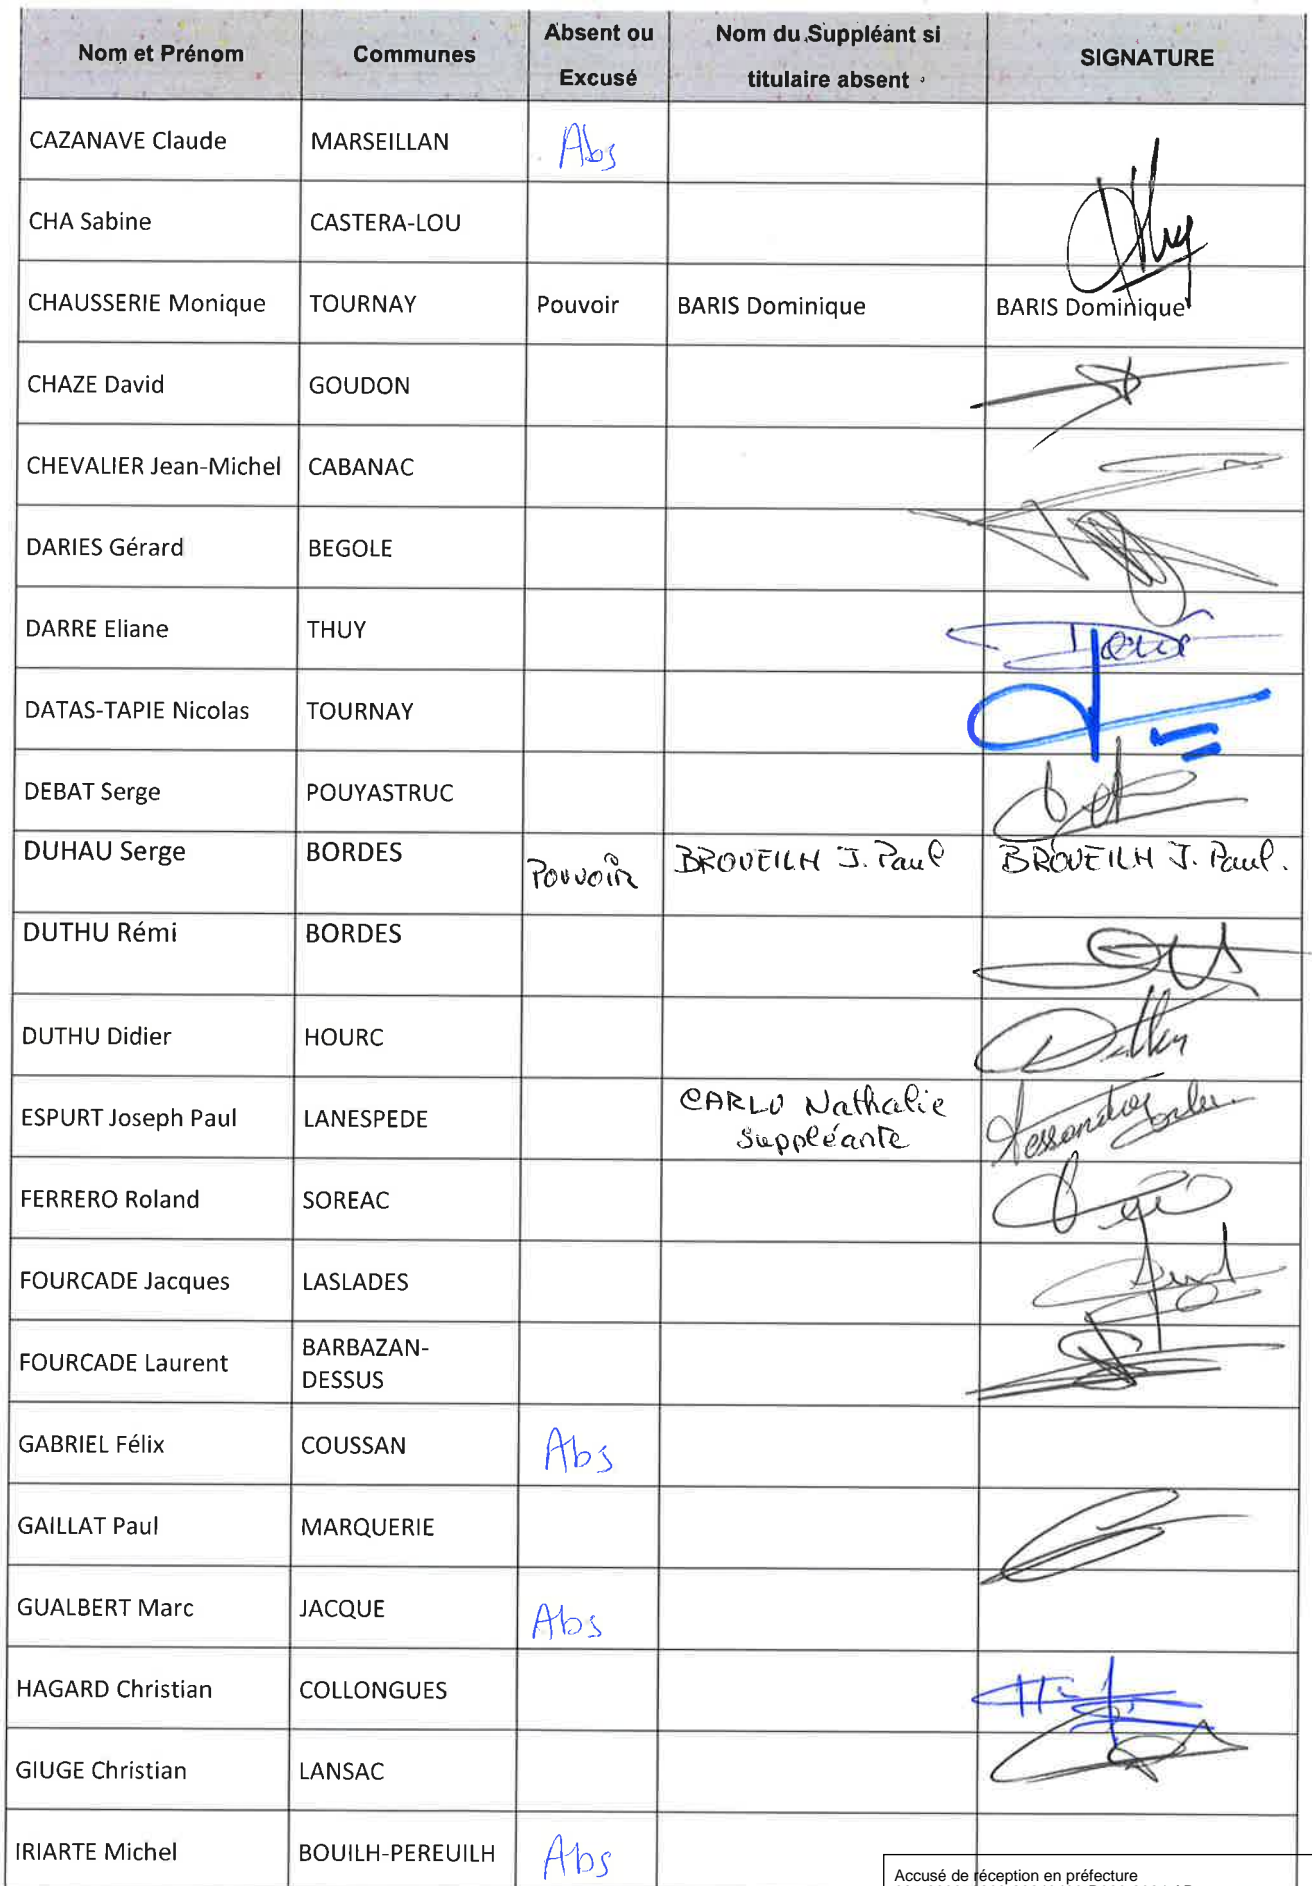 Nom et Prénom Communes Absent ou Excusé Nom du Suppléant si titulaire absent SIGNATURE
CAZANAVE Claude MARSEILLAN Abs
CHA Sabine CASTERA-LOU
CHAUSSERIE Monique TOURNAY Pouvoir BARIS Dominique BARIS Dominique
CHAZE David GOUDON
CHEVALIER Jean-Michel CABANAC
DARIES Gérard BEGOLE
DARRE Eliane THUY
DATAS-TAPIE Nicolas TOURNAY
DEBAT Serge POUYASTRUC
DUHAU Serge BORDES Pouvoir BROUEILH J. Paul BROUEILH J. Paul.
DUTHU Rémi BORDES
DUTHU Didier HOURC
ESPURT Joseph Paul LANESPEDE CARLU Nathalie Suppléante
FERRERO Roland SOREAC
FOURCADE Jacques LASLADES
FOURCADE Laurent BARBAZAN-DESSUS
GABRIEL Félix COUSSAN Abs
GAILLAT Paul MARQUERIE
GUALBERT Marc JACQUE Abs
HAGARD Christian COLLONGUES
GIUGE Christian LANSAC
IRIARTE Michel BOUILH-PEREUILH Abs
Accusé de réception en préfecture